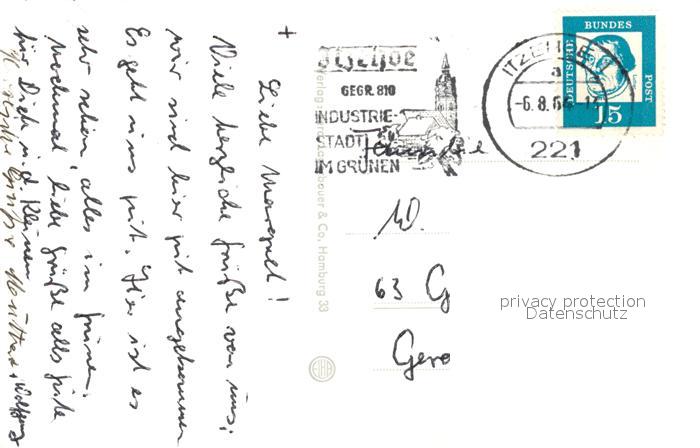 +
Liebe Margret!
Viele herzliche Grüße von uns,
wir sind hier gut angekommen
Es geht uns gut. Hier ist es
sehr schön, alles im Grünen.
nochmal liebe Grüße alles Gute
für Dich u. d. Kleinen
Wolfgang
Itzehoe
GEGR. 810
INDUSTRIE-
STADT
IM GRÜNEN
ITZEHOE
a
-6.8.64-17
221
DEUTSCHE
BUNDES
POST
15
Familie
W.
63 G
Gers
& Co, Hamburg 33
EIHA
privacy protection
Datenschutz